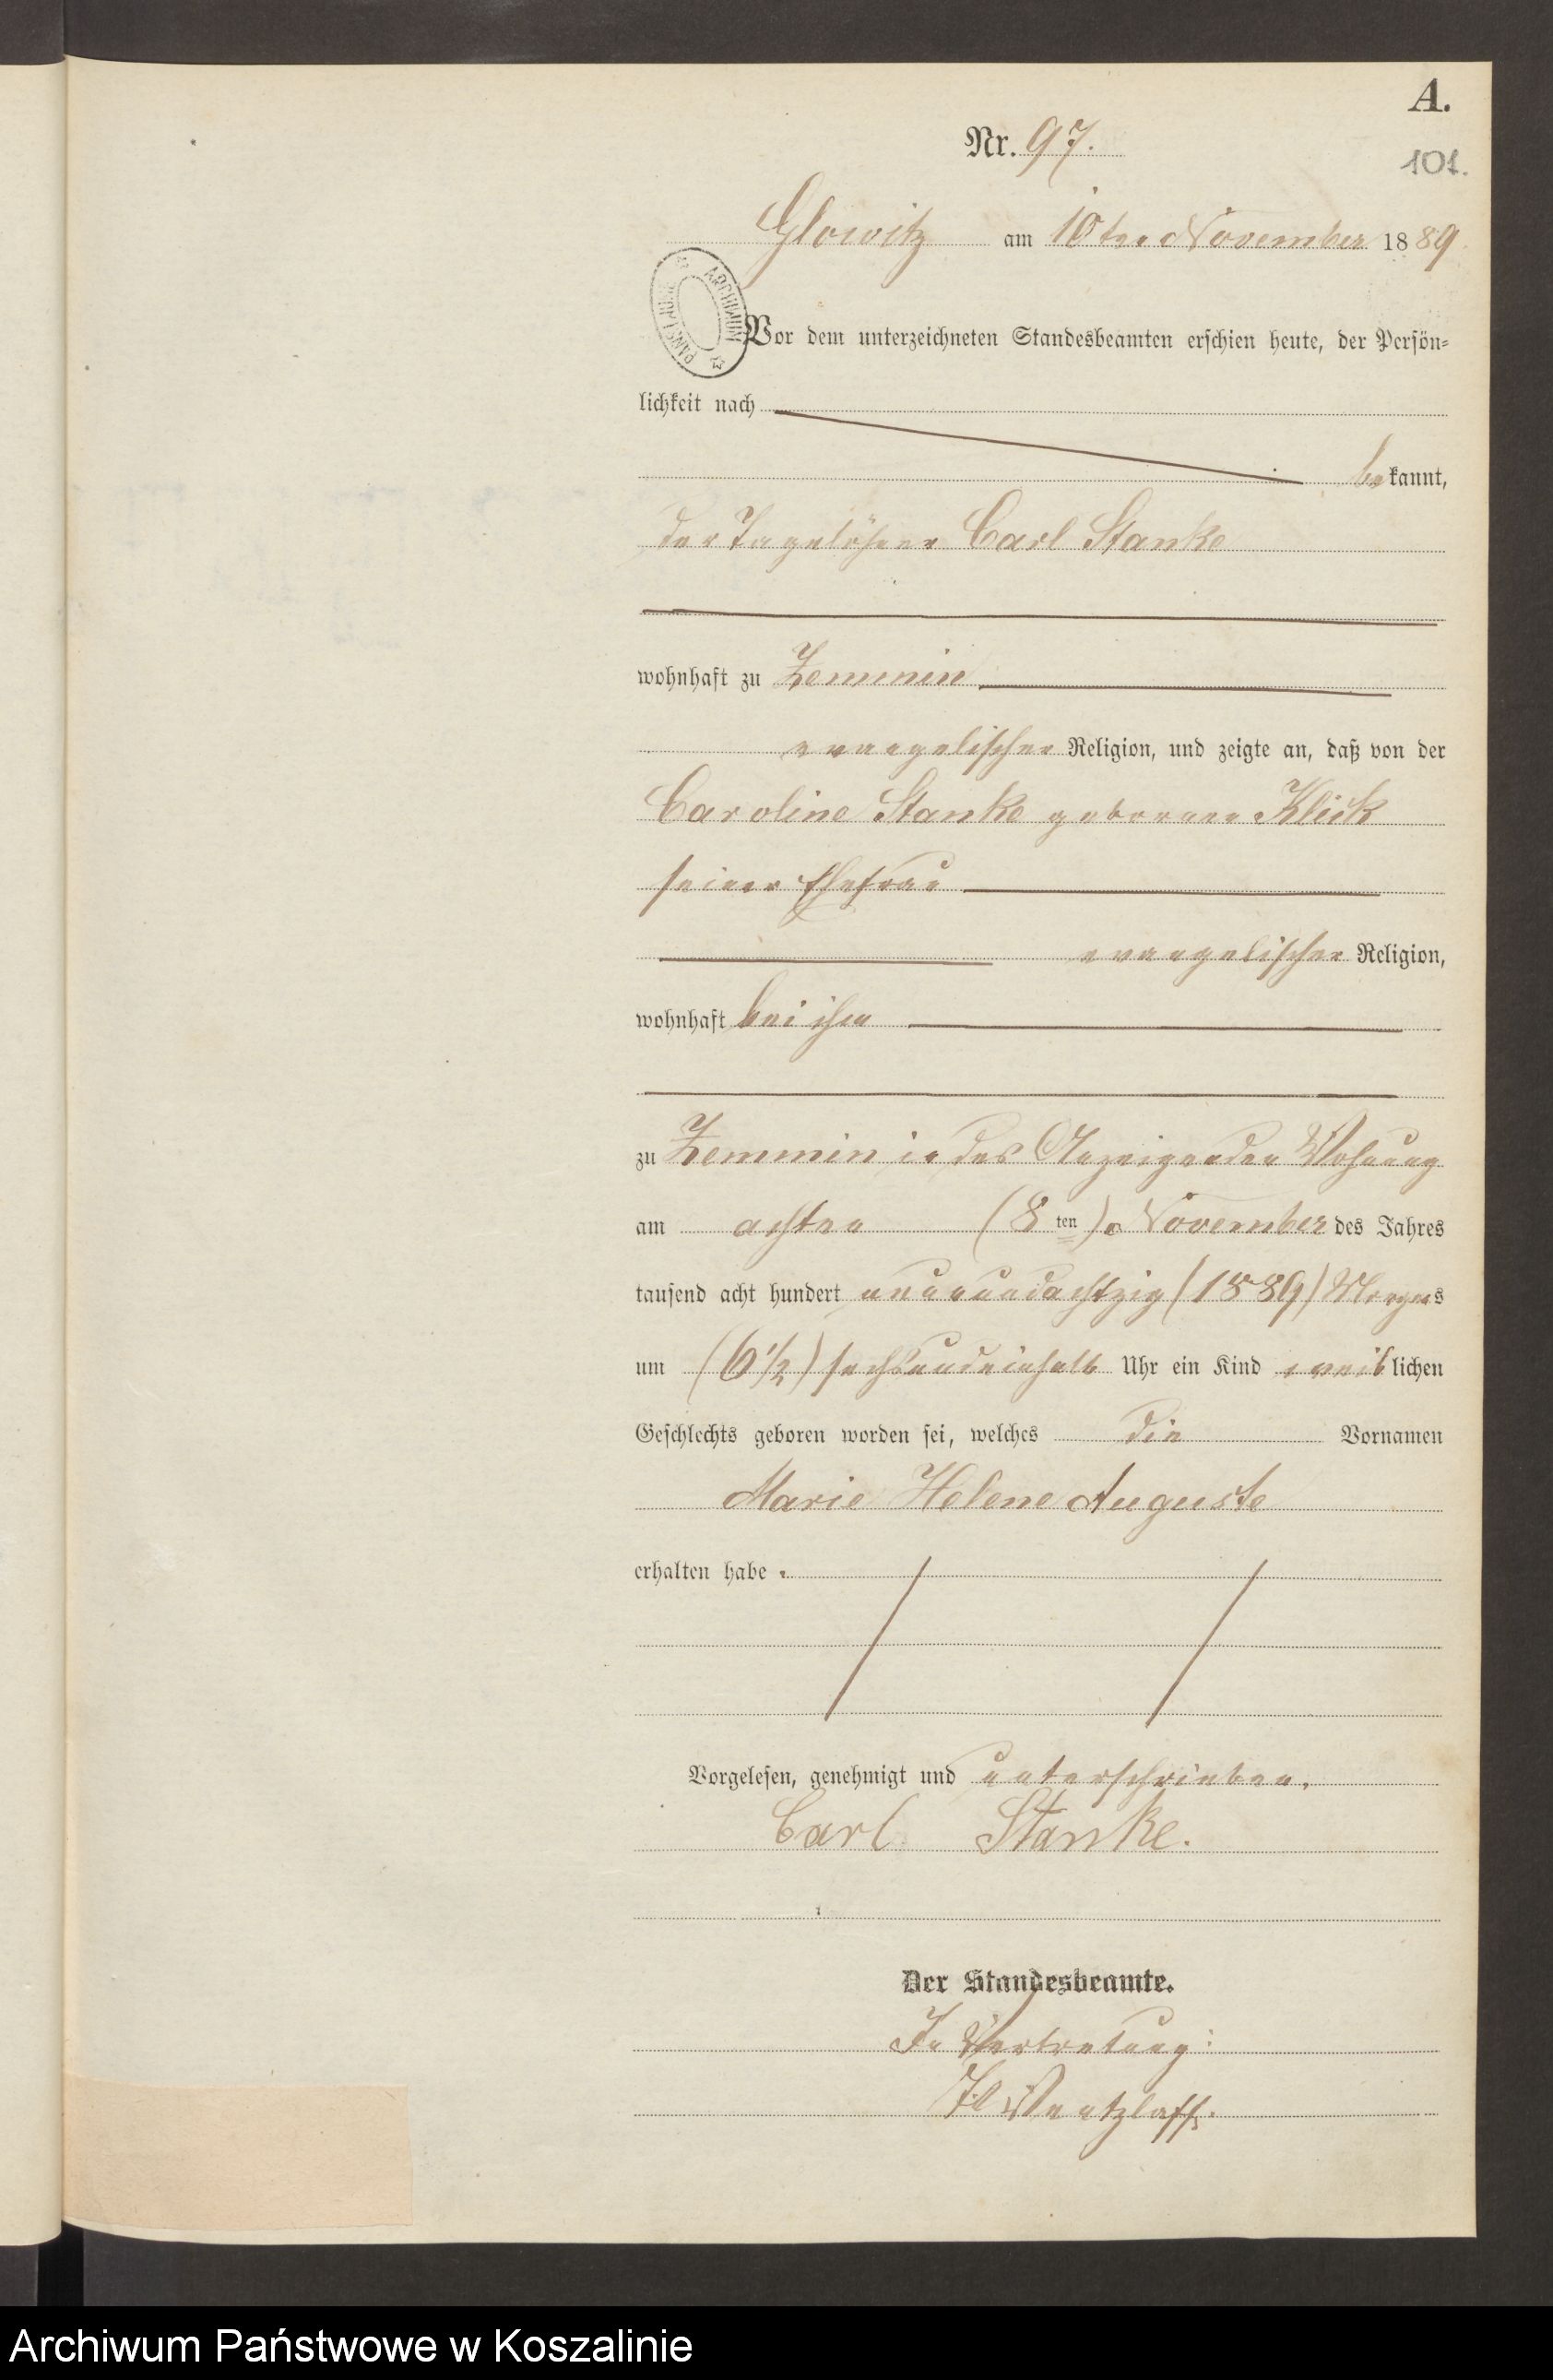 A.
Nr. 97.
101.
Glowitz am 10ten November 1889.
ARCHIWUM PAŃSTWOWE
Vor dem unterzeichneten Standesbeamten erschien heute, der Persön-
lichkeit nach
bekannt,
der Tagelöhner Carl Stanke
wohnhaft zu Zemmin
evangelischer Religion, und zeigte an, daß von der
Caroline Stanke geborenen Klick
seiner Ehefrau
evangelischer Religion,
wohnhaft bei ihm
zu Zemmin in des Anzeigenden Wohnung
am achten (8ten) November des Jahres
tausend acht hundert neunundachtzig (1889) Morgens
um (6 1/2) sechsundeinhalb Uhr ein Kind weiblichen
Geschlechts geboren worden sei, welches die Vornamen
Marie Helene Auguste
erhalten habe.
Vorgelesen, genehmigt und unterschrieben.
Carl Stanke.
Der Standesbeamte.
In Vertretung:
Wentzlaff.
Archiwum Państwowe w Koszalinie